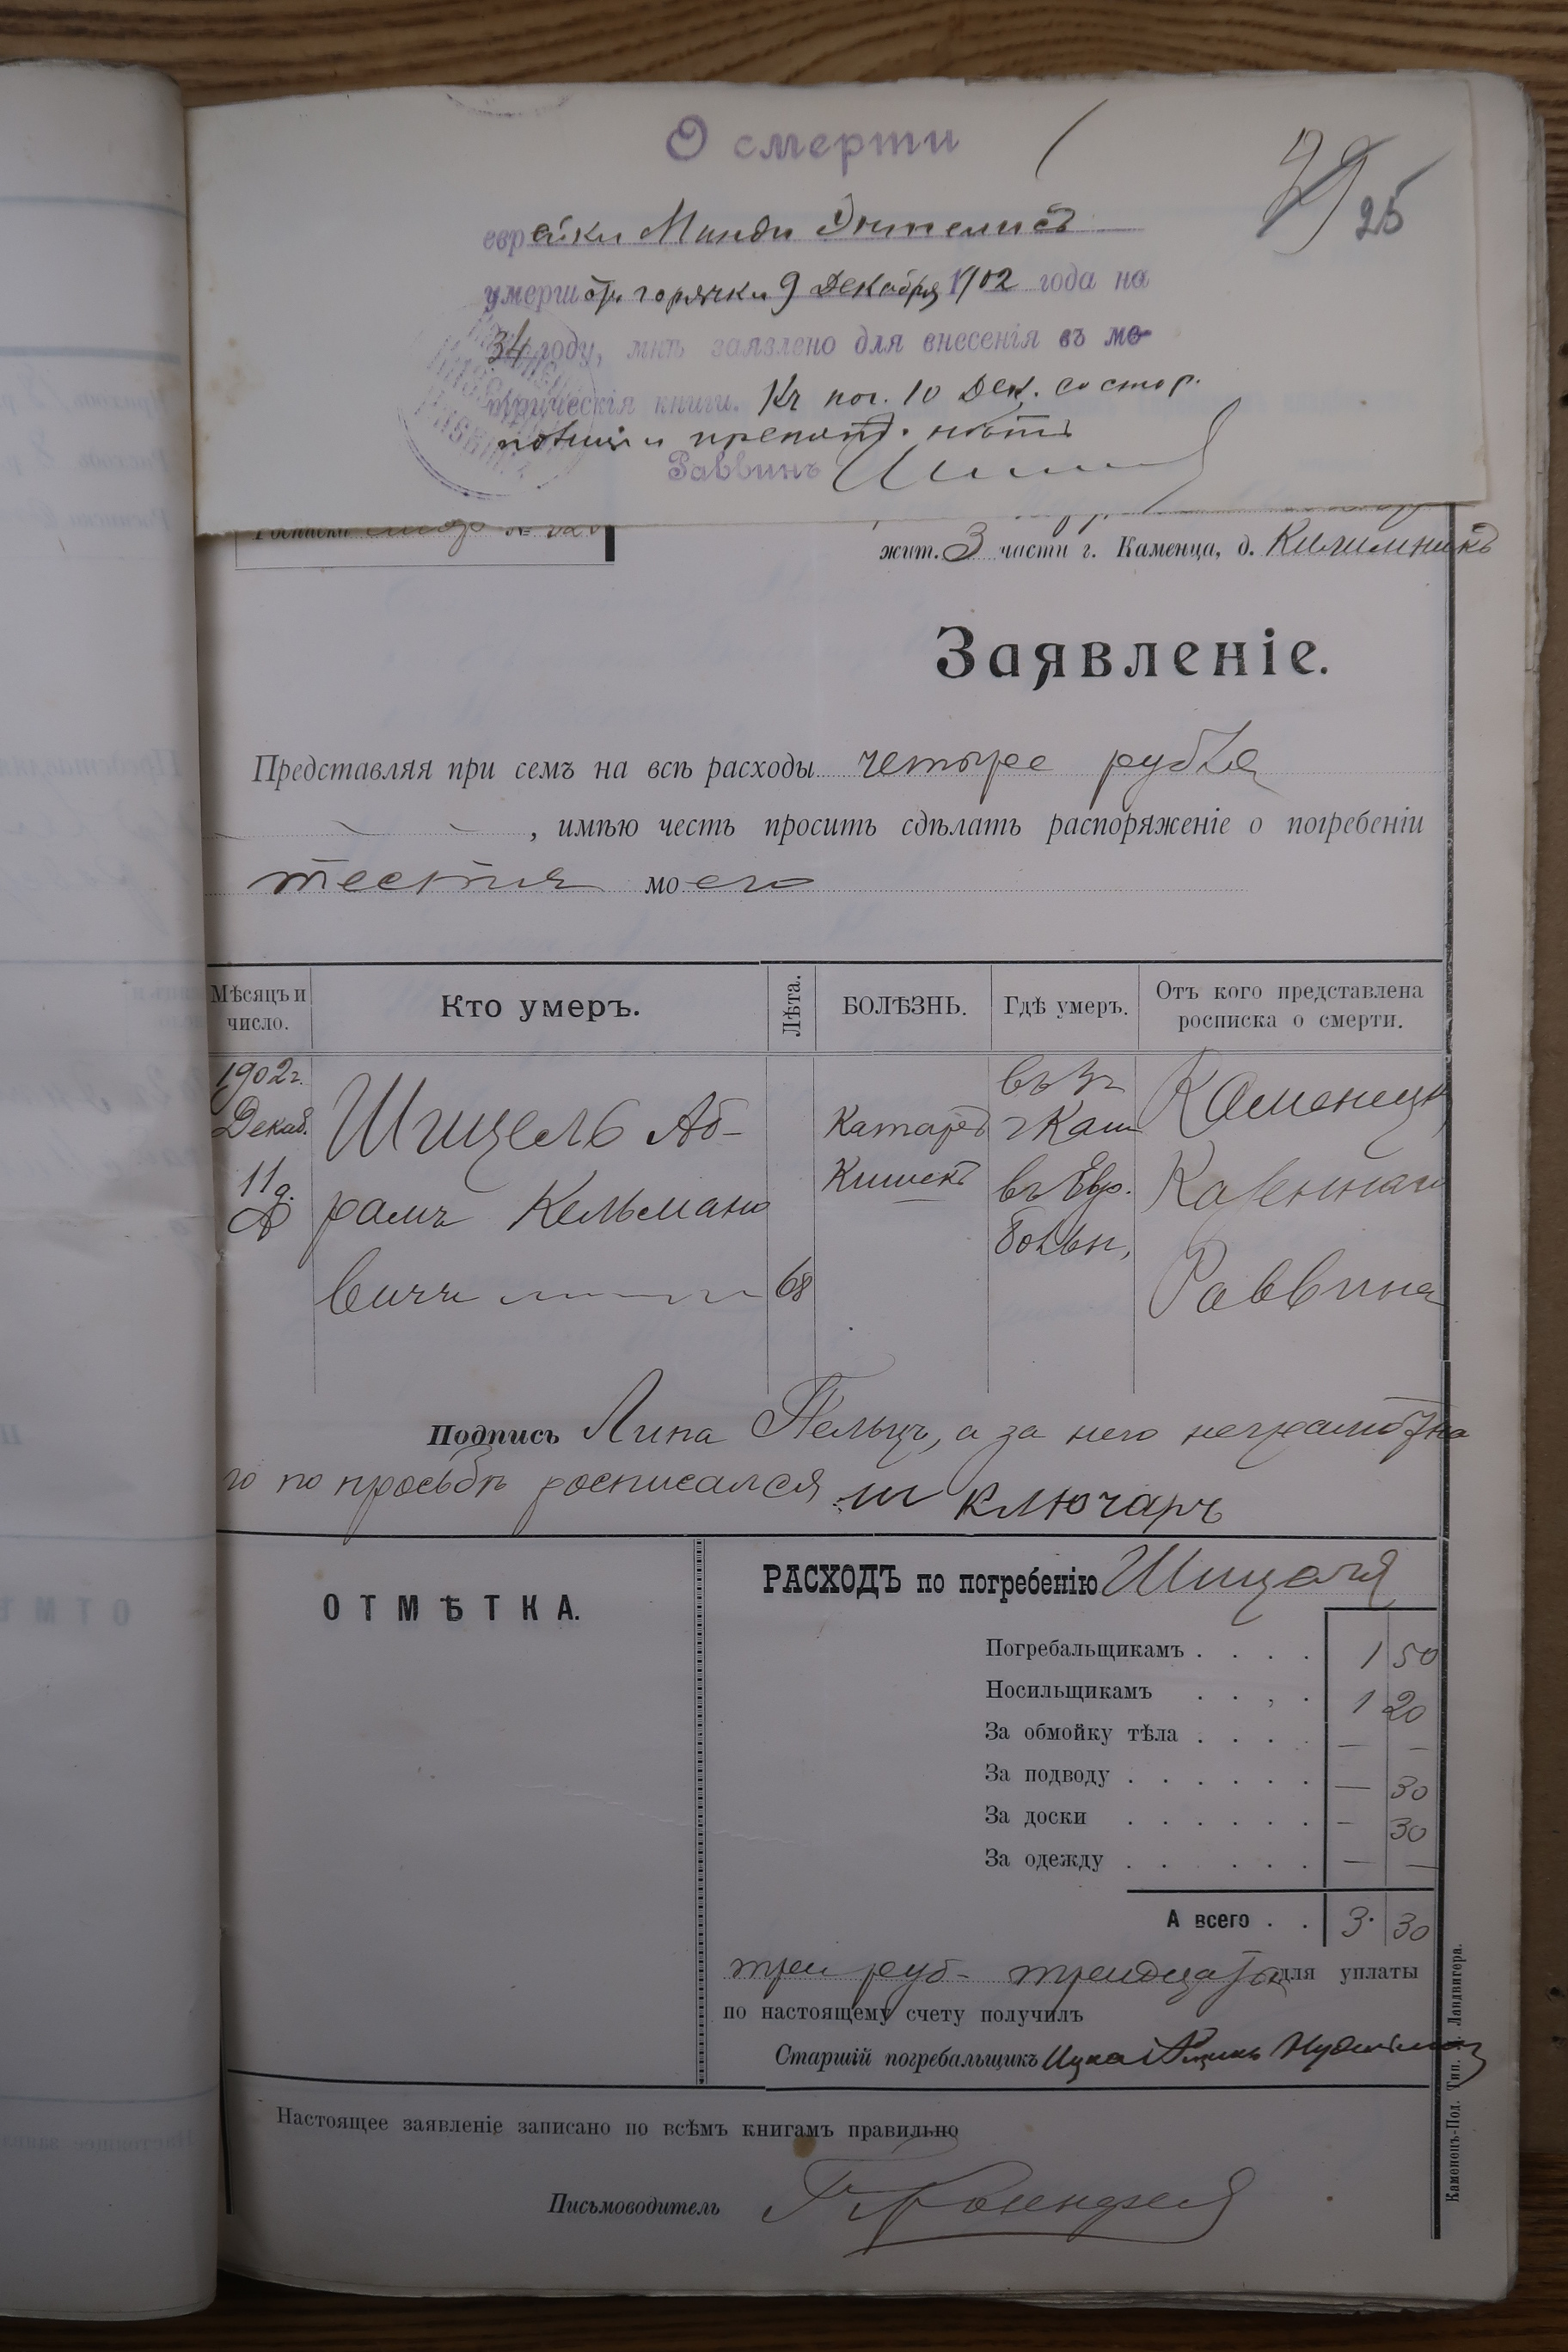 О смерти
25
еврейки Минди
умерш от горячки 9 Декабря 1902 года на
34 году, мнѣ заявлено для внесенія въ ме-
трическія книги. Къ пог. 10 Дек. со стор.
полиціи препят. нѣтъ
Раввинъ
Росписки №
жит. 3 части г. Каменца, д. Килимникъ
Заявленіе.
Представляя при семъ на всѣ расходы четыре рубля
, имѣю честь просить сдѣлать распоряженіе о погребеніи
тестя моего
Мѣсяцъ и число.
Кто умеръ.
Лѣта.
БОЛѢЗНЬ.
Гдѣ умеръ.
Отъ кого представлена росписка о смерти.
1902 г.
Декаб.
11 д.
Шицель Аб-
рамъ Кельмано
вичъ
68
Катаръ
Кишекъ
г Кам
въ Евр.
больн,
Каменецк
Казеннаго
Раввина
Подпись Липа Пельцъ, а за него неграмотна
го по просьбѣ росписался Ш Ключаръ
ОТМѢТКА.
РАСХОДЪ по погребенію Шицеля
Погребальщикамъ . . . . 1 50
Носильщикамъ . . , . 1 20
За обмойку тѣла . . . . — —
За подводу . . . . . . — 30
За доски . . . . . . — 30
За одежду . . . . . . — —
А всего . . 3 30
три руб - тридцать для уплаты
по настоящему счету получилъ
Старшій погребальщикъ
Настоящее заявленіе записано по всѣмъ книгамъ правильно
Письмоводитель
Каменецъ-Под. Тип. Ландвигера.